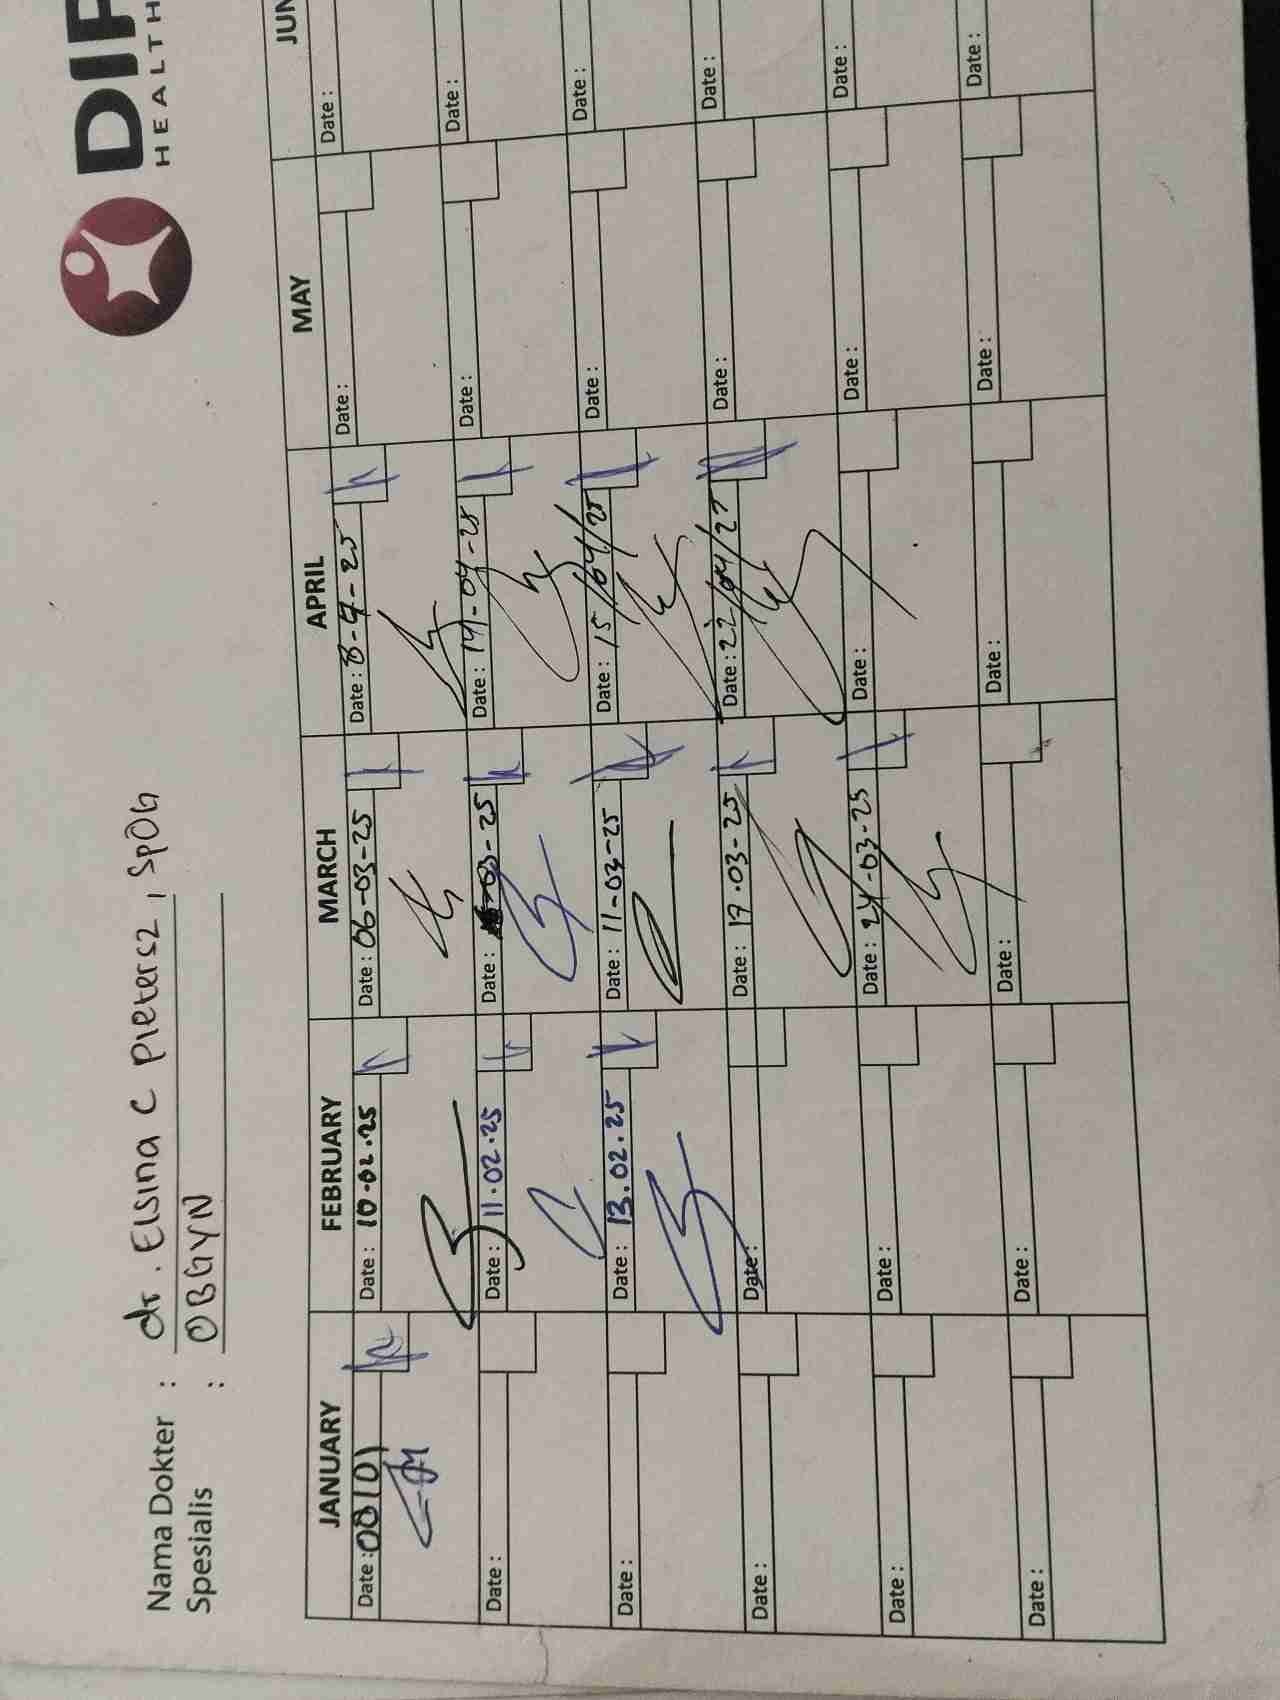 DIF
HEALTH
Nama Dokter : dr. Elsina C Pietersz, SpOG
Spesialis : OBGYN
JANUARY FEBRUARY MARCH APRIL MAY JUN
Date : 08/01 Date : 10.02.25 Date : 06-03-25 Date : 8-4-25 Date : Date :
Date : Date : 11.02.25 Date : -03-25 Date : 14-04-25 Date : Date :
Date : Date : 13.02.25 Date : 11-03-25 Date : 15/04/25 Date : Date :
Date : Date : Date : 17.03-25 Date : 22/04/25 Date : Date :
Date : Date : Date : 24-03-25 Date : Date : Date :
Date : Date : Date : Date : Date : Date :